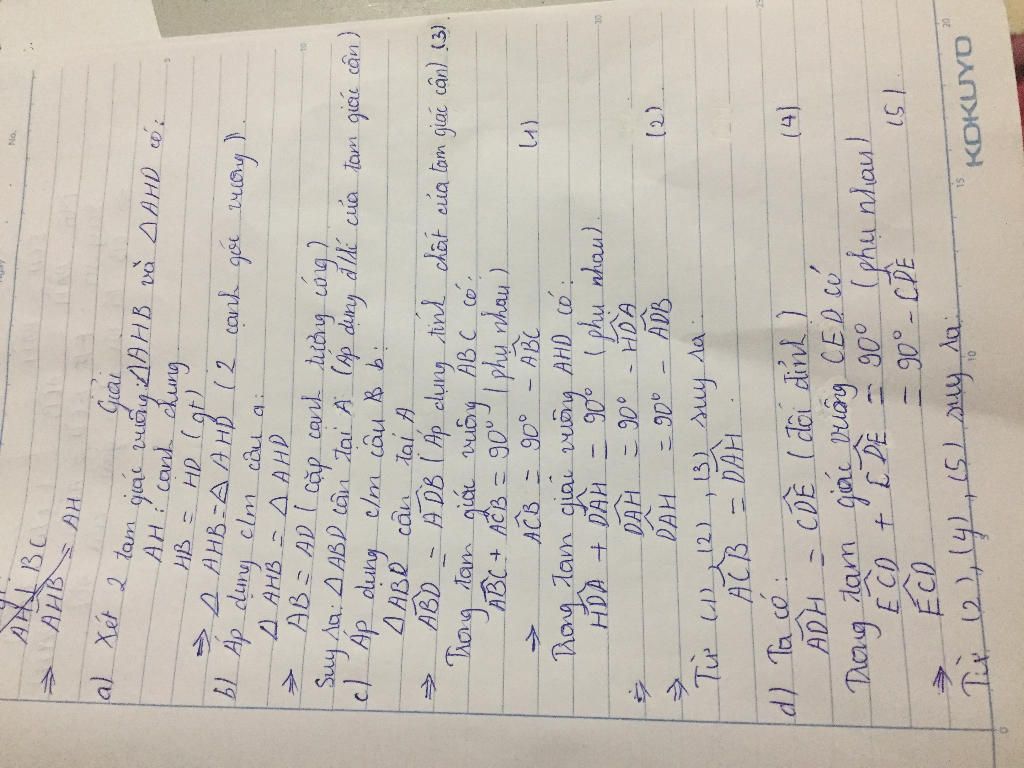 No.
AH ⊥ BC
⇒ AHB = AH
Giải
a) Xét 2 tam giác vuông: ΔAHB và ΔAHD có:
AH: cạnh chung
HB = HD (gt)
⇒ Δ AHB = Δ AHD (2 cạnh góc vuông).
b) Áp dụng c/m câu a:
Δ AHB = Δ AHD
⇒ AB = AD (cặp cạnh tương ứng)
Suy ra: Δ ABD cân tại A (Áp dụng đ/lí của tam giác cân)
c) Áp dụng c/m câu B b:
ΔABD cân tại A
⇒ ABD = ADB (Áp dụng tính chất của tam giác cân) (3)
Trong tam giác vuông ABC có:
ABC + ACB = 90° (phụ nhau)
⇒ ACB = 90° - ABC (1)
Trong tam giác vuông AHD có:
HDA + DAH = 90° (phụ nhau)
⇒ DAH = 90° - HDA
⇒ DAH = 90° - ADB (2)
Từ (1), (2), (3) suy ra:
ACB = DAH.
d) Ta có:
ADH = CDE (đối đỉnh) (4)
Trong tam giác vuông CED có
ECD + CDE = 90° (phụ nhau)
⇒ ECD = 90° - CDE (5)
Từ (2), (4), (5) suy ra:
KOKUYO
0
5
10
15
20
5
10
25
30